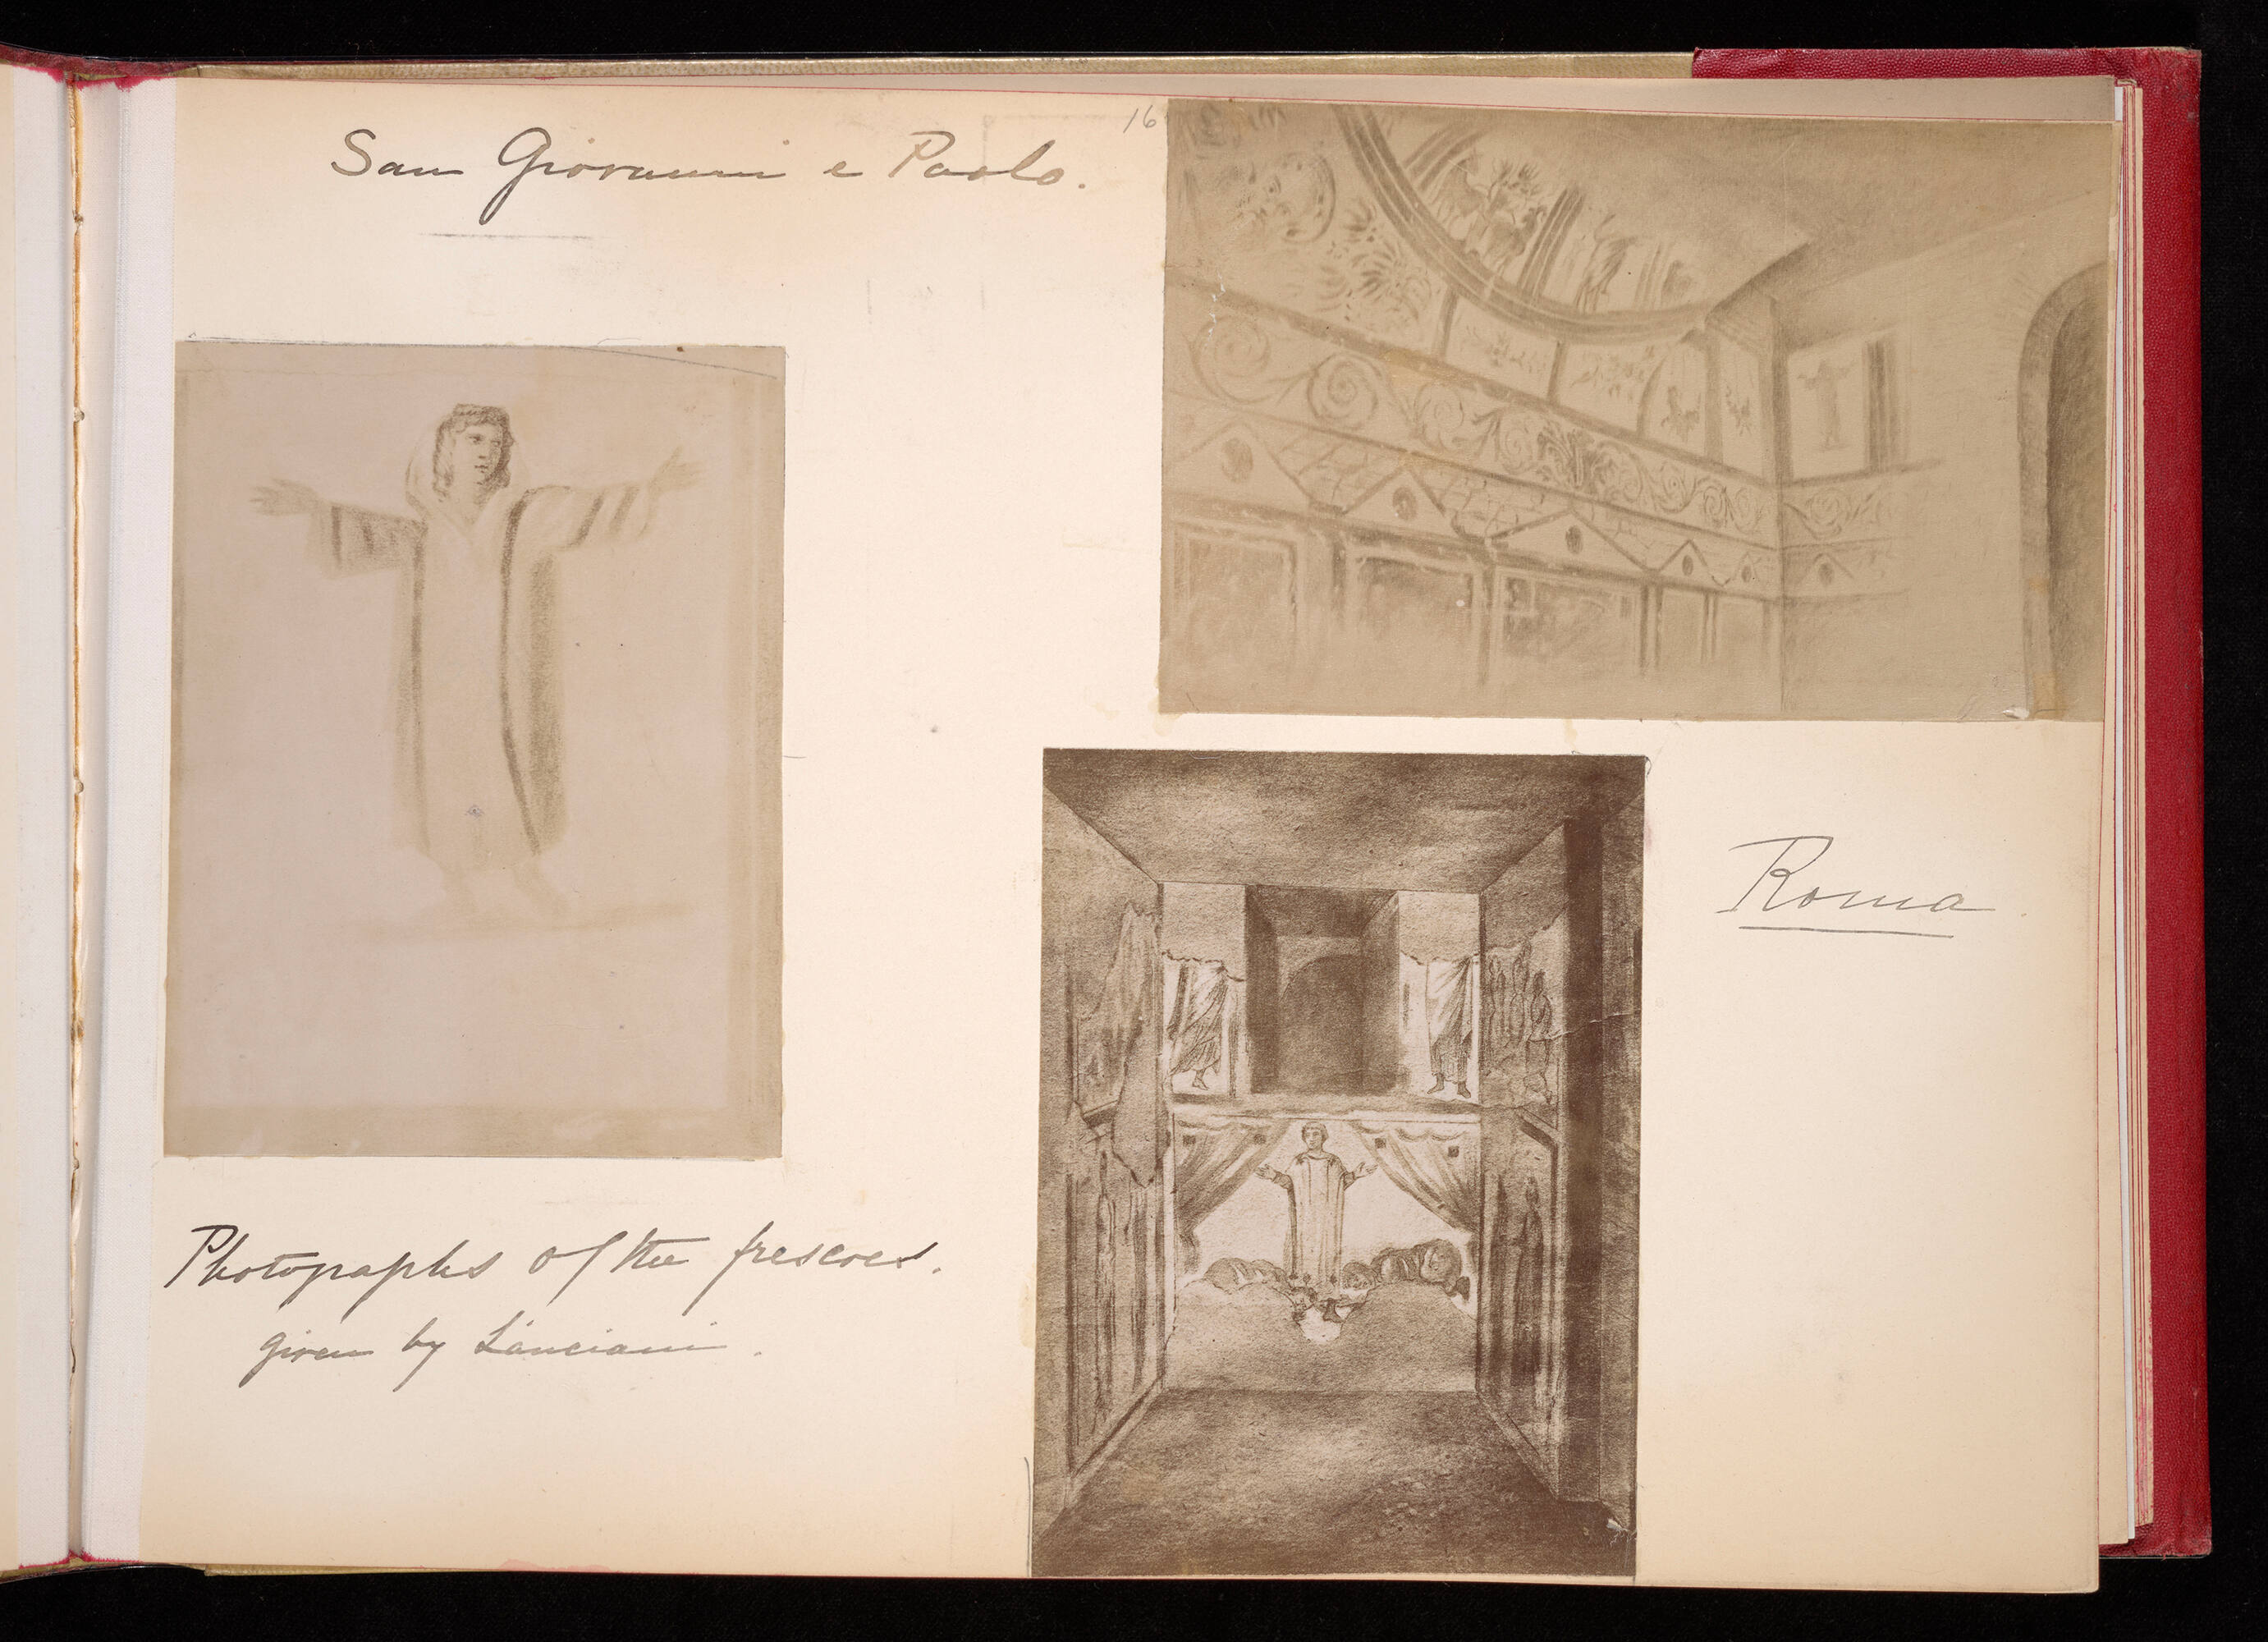 16
San Giovanni e Paolo.
Roma.
Photographs of the frescoes.
given by Lanciani.